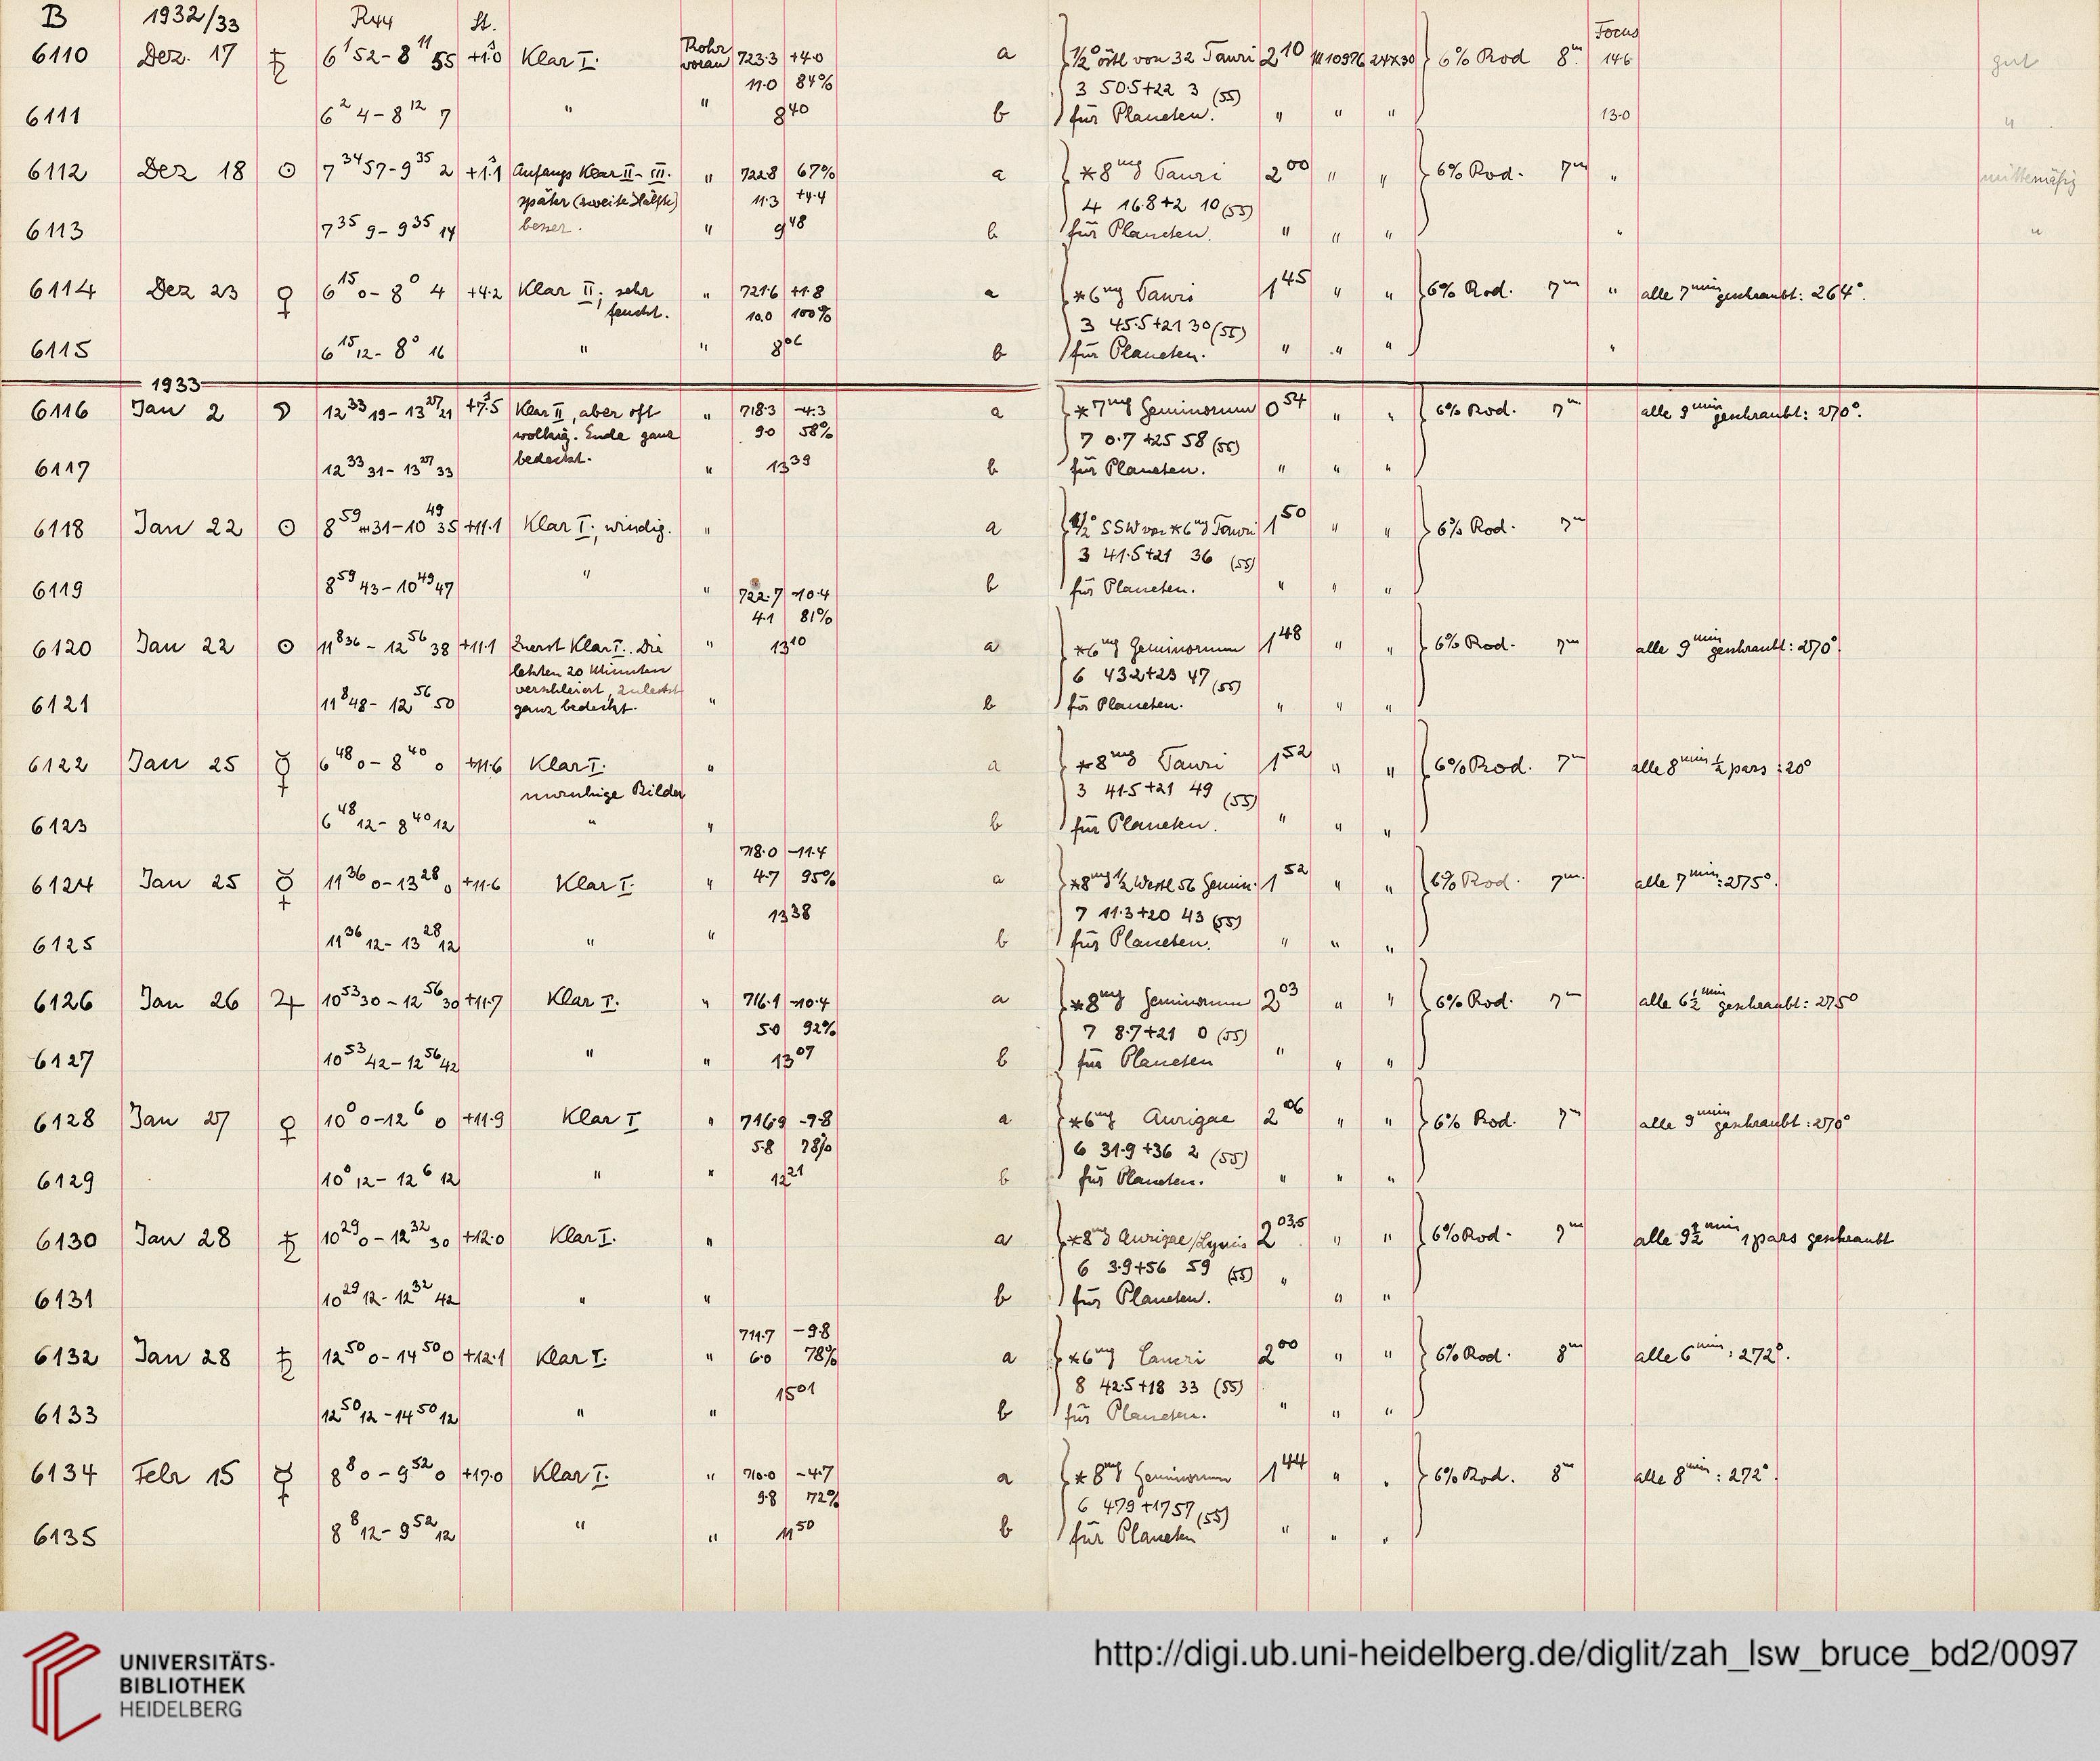 B 1932/33 R44 St. Focus
6110 Dez. 17 ♄ 6 1 52 - 8 11 55 +1.0 Klar I. Rohr voran 723.3 +4.0 a ½° östl von 32 Tauri 2 10 III 10976 24x30 6% Rod 8m. 146 gut
11.0 84% 3 50.5+22 3 (55)
6111 6 2 4 - 8 12 7 " " 8 40 b für Planeten. " " " 130 "
6112 Dez 18 ☉ 7 34 57 - 9 35 2 +1.1 Anfangs Klar II - III. " 722.8 67% a *8 mg Tauri 2 00 " " 6% Rod. 7m " mittemäßig
später (zweite Hälfte) 11.3 +4.4 4 16.8+2 10 (55)
6113 7 35 9 - 9 35 14 besser. " 9 48 b für Planeten. " " " " "
6114 Dez 23 ♀ 6 15 0 - 8 0 4 +4.2 Klar II; sehr " 721.6 +1.8 a *6 mg Tauri 1 45 " " 6% Rod. 7m " alle 7 min geschraubt: 264°.
feucht. 10.0 100% 3 45.5+21 30 (55)
6115 6 15 12 - 8 0 16 " " 8 06 b für Planeten. " " " "
1933
6116 Jan 2 ☽ 12 33 19 - 13 27 21 +7.5 Klar II, aber oft " 718.3 -4.3 a *7 mg Geminorum 0 54 " " 6% Rod. 7m alle 9 min geschraubt: 270°.
wolkig. Ende ganz 9.0 58% 7 0.7 +25 58 (55)
6117 12 33 31 - 13 27 33 bedeckt. " 13 39 b für Planeten. " " "
6118 Jan 22 ☉ 8 59 31 - 10 49 35 +11.1 Klar I; windig. " a ½° SSW von *6 mg Tauri 1 50 " " 6% Rod. 7m
3 41.5+21 36 (55)
6119 8 59 43 - 10 49 47 " " 722.7 -10.4 b für Planeten. " " "
4.1 81%
6120 Jan 22 ☉ 11 8 36 - 12 56 38 +11.1 Zuerst Klar I. Die " 13 10 a *6 mg Geminorum 1 48 " " 6% Rod. 7m alle 9 min geschraubt: 270°.
letzten 20 Minuten 6 43.2+23 47 (55)
verschleiert, zuletzt
6121 11 8 48 - 12 56 50 ganz bedeckt. " b für Planeten. " " "
6122 Jan 25 ☿ 6 48 0 - 8 40 0 +11.6 Klar I. " a *8 mg Tauri 1 52 " " 6% Rod. 7m alle 8 min ½ pars : 20°
unruhige Bilder 3 41.5 +21 49 (55)
6123 6 48 12 - 8 40 12 " " b für Planeten. " " "
718.0 -11.4
6124 Jan 25 ☿ 11 36 0 - 13 28 0 +11.6 Klar I. " 4.7 95% a *8 mg ½ Westl 56 Gemin. 1 52 " " 6% Rod. 7m. alle 7 min: 275°.
13 38 7 11.3+20 43 (55)
6125 11 36 12 - 13 28 12 " " b für Planeten. " " "
6126 Jan 26 ♃ 10 53 30 - 12 56 30 +11.7 Klar I. " 716.1 -10.4 a *8 mg Geminorum 2 03 " " 6% Rod. 7m alle 6½ min geschraubt: 275°
5.0 92% 7 8.7+21 0 (55)
6127 10 53 42 - 12 56 42 " " 13 07 b für Planeten " " "
6128 Jan 27 ♀ 10 0 0 - 12 6 0 +11.9 Klar I " 716.9 -7.8 a *6 mg Aurigae 2 06 " " 6% Rod. 7m alle 9 min geschraubt: 270°
5.8 78% 6 31.9 +36 2 (55)
6129 10 0 12 - 12 6 12 " " 12 21 b für Planeten. " " "
6130 Jan 28 ♄ 10 29 0 - 12 32 30 +12.0 Klar I. " a *8 mg Aurigae/Lyncis 2 03.5 " " 6% Rod. 7m alle 9½ min 1 pars geschraubt
6 3.9+56 59 (55)
6131 10 29 12 - 12 32 42 " " b für Planeten. " " "
711.7 -9.8
6132 Jan 28 ♄ 12 50 0 - 14 50 0 +12.1 Klar I. " 6.0 78% a *6 mg Cancri 2 00 " " 6% Rod. 8m alle 6 min: 272°.
15 01 8 42.5+18 33 (55)
6133 12 50 12 - 14 50 12 " " b für Planeten. " " "
6134 Febr 15 ☿ 8 8 0 - 9 52 0 +17.0 Klar I. " 710.0 -4.7 a *8 mg Geminorum 1 44 " " 6% Rod. 8m alle 8 min: 272°.
9.8 72% 6 47.9 +17 57 (55)
6135 8 8 12 - 9 52 12 " " 11 50 b für Planeten " " "
UNIVERSITÄTS-
BIBLIOTHEK
HEIDELBERG
http://digi.ub.uni-heidelberg.de/diglit/zah_lsw_bruce_bd2/0097